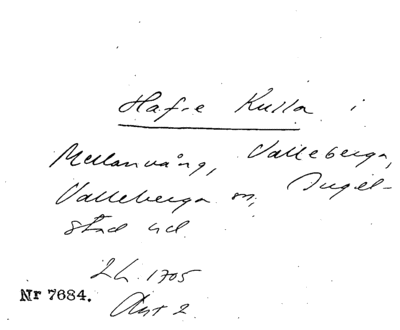 Hafre Kulla i
Mellanvång, Valleberga,
Valleberga sn, Ingel-
stad hd.
LL. 1705
Nr 7684.
Akt 2